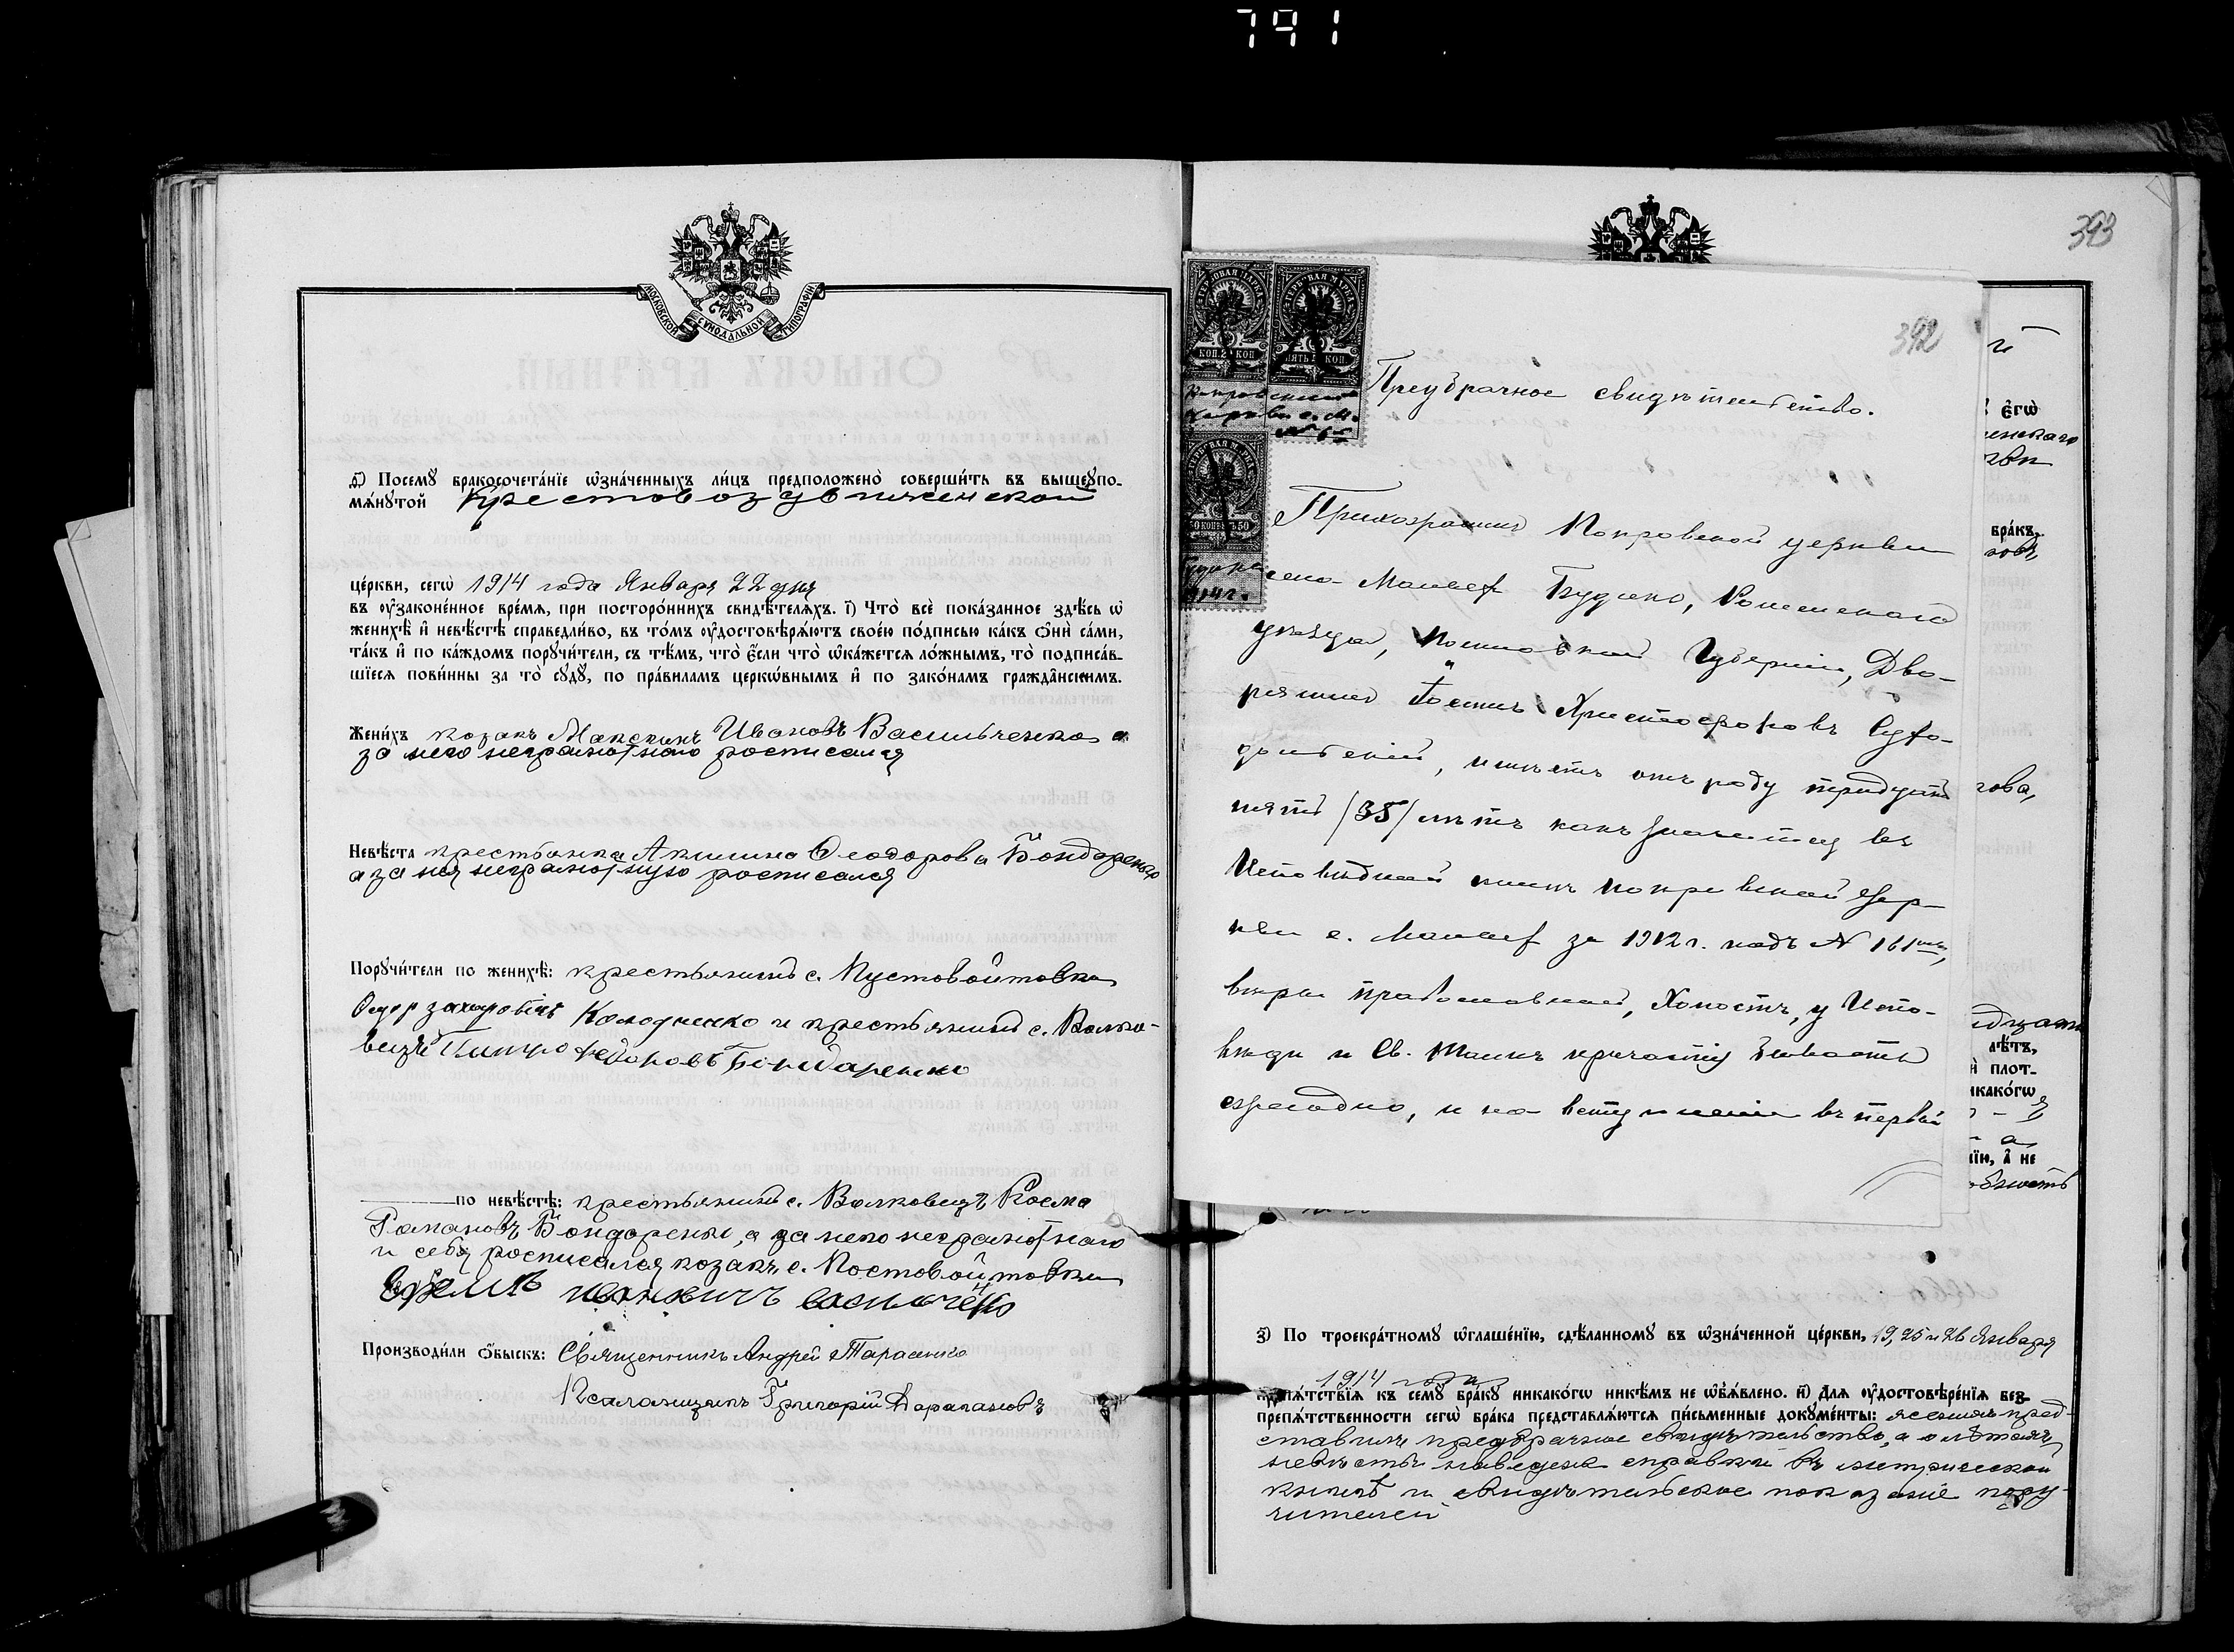 791
МОСКОВСКОЙ СѴНОДАЛЬНОЙ ТИПОГРАФІИ
Посемꙋ̀ бракосочета́нїе ѡ҆зна́ченныхъ ли́цъ предположено̀ соверши́ть въ вышеꙋпо-
мѧ́нꙋтой Крестовоздвиженской
це́ркви, сегѡ̀ 1914 года Января 22 дня
въ ᲂу҆законе́нное вре́мѧ, при посторо́ннихъ свидѣ́телѧхъ. і҃) Что̀ всѐ пока́занное здѣ́сь ѡ҆
женихѣ̀ и҆ невѣ́стѣ справедли́во, въ то́мъ ᲂу҆достовѣрѧ́ютъ свое́ю по́дписью ка́къ ѻ҆нѝ са́ми,
та́къ и҆ по ка́ждомъ порꙋчи́тели, съ тѣ́мъ, что̀ є҆́сли что̀ ѡ҆ка́жетсѧ ло́жнымъ, то̀ подписа́в-
шїесѧ пови́нны за то̀ сꙋдꙋ̀, по пра́виламъ церкѡ́внымъ и҆ по зако́намъ гражда̂нскимъ.
Жени́хъ козакъ Максимъ Ивановъ Васильченко а
за него неграмотнаго росписался
Невѣ́ста крестьянка Акилина Ѳеодорова Бондаренко
а за нея неграмотную росписался
Порꙋчи́тели по женихѣ̀: крестьянинъ с. Пустовойтовки
Федор захаровичъ Колодненко и крестьянинъ с. Волко-
вецъ Петро Федоровъ Бондаренко
по невѣ́стѣ: крестьянинъ с. Волковецъ Косма
Романовъ Бондаренко, а за него неграмотнаго
и себя росписался козакъ с. Постовойтовки
Производи́ли ѻ҆́быскъ: Священникъ Андрей Тарасенко
Псаломщикъ Григорій
393
392
КОП. КОП
ПЯТЬ КОП.
Покровской
церкви с. М.
50 КОПѢЕКЪ 50
1914 г.
Предбрачное свидѣтельство.
Прихожанинъ Покровской церкви
села Малыхъ Будокъ, Роменскаго
уѣзда, Полтавской Губерніи, Дво-
рянинъ Христофоровъ Сухо-
дольскій, имѣетъ отъ роду тридцать
пять /35/ лѣтъ какъ значится въ
Исповѣдной книгѣ Покровской Цер-
кви с. Малыхъ за 1912 г. подъ № 161мъ,
вѣры православной, Холостъ, у Испо-
вѣди и Св. Таинъ причастія бываетъ
ежегодно, и на вступленіе въ первый
є҆гѡ̀
бра́къ,
лѣ́тъ,
и҆ плот-
никако́гѡ
а҆ не
з҃) По троекра́тномꙋ ѡ҆глаше́нїю, сдѣ́ланномꙋ въ ѡ҆зна́ченной це́ркви, 19, 25 и 26 Января
1914 года
препѧ́тствїѧ къ семꙋ̀ бра́кꙋ никако́гѡ никѣ́мъ не ѡ҆б̾ѧ́влено. и҃) Длѧ̀ ᲂу҆достовѣре́нїѧ без-
препѧ́тственности сегѡ̀ бра́ка представлѧ́ютсѧ пи́сьменные докꙋме́нты: женихъ пред-
ставилъ предбрачное свидѣтельство, а о лѣтахъ
невѣсты наведена справка въ метрической
книгѣ и свидѣтельское показаніе пору-
чителей